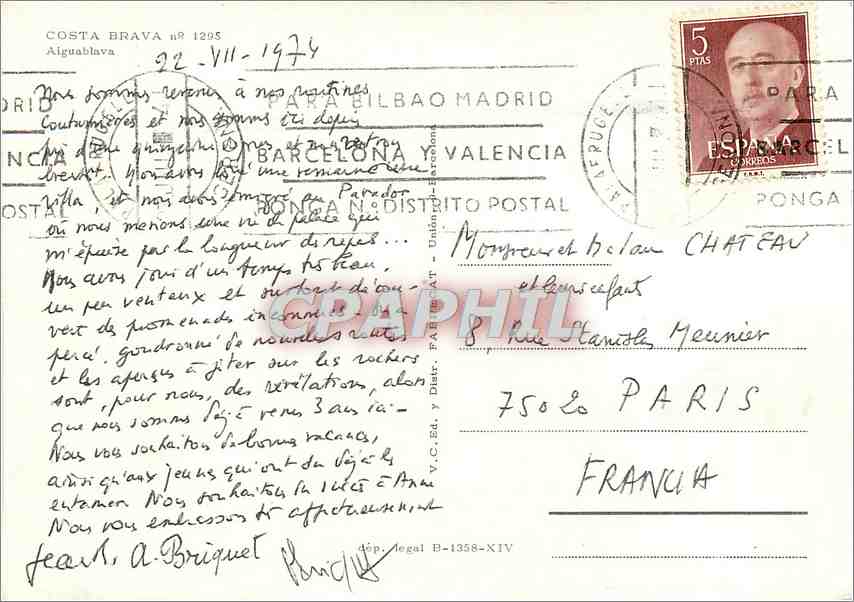 COSTA BRAVA nº 1295
Aiguablava
22-VII-1974
5
PTAS
ESPAÑA
CORREOS
F.N.M.T.
PARA BILBAO MADRID
BARCELONA Y VALENCIA
PONGA Nº DISTRITO POSTAL
PALAFRUGELL
GERONA
Nous sommes revenus à nos routines
coutumières et nous sommes ici depuis
villa, et nous avons émigré au Parador
où nous menons une vie de palace qui
m'épuise par la longueur des repas...
Nous avons joui d'un temps très beau,
un peu venteux et surtout décou-
vert des promenades inconnues - On a
percé, goudronné de nouvelles routes
et les aperçus à jeter sur les rochers
sont, pour nous, des révélations, alors
que nous sommes déjà venus 3 ans ici -
Nous vous souhaitons de bonnes vacances,
ainsi qu'aux jeunes qui ont dû déjà les
entamer. Nous souhaitons un succès à Anne
Nous vous embrassons très affectueusement
Jean R. A. Briquet
Monsieur et Madame CHATEAU
et leurs enfants
8, rue Stanislas Meunier
75020 PARIS
FRANCIA
V.C. Ed. y Distr. FABREGAT - Unión - Barcelona
dép. legal B-1358-XIV
CPAPHIL